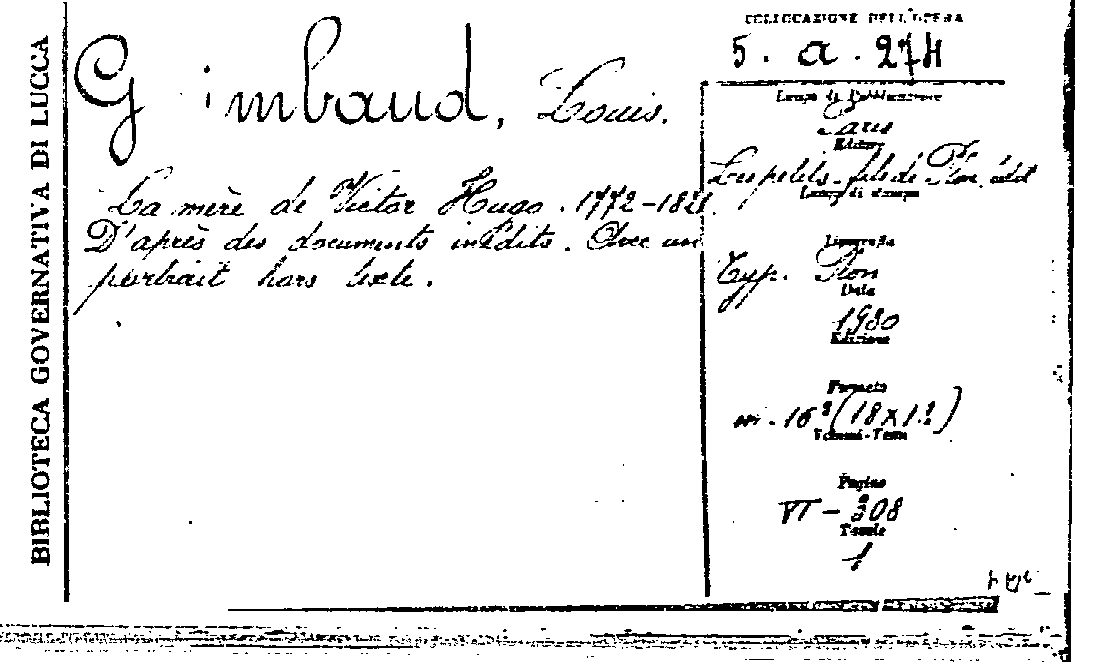 BIBLIOTECA GOVERNATIVA DI LUCCA
COLLOCAZIONE DELL'OPERA
5. a. 274
Guimbaud, Louis.
La mère de Victor Hugo. 1772-1821.
D'après des documents inédits. Avec un
portrait hors texte.
Luogo di Pubblicazione
Paris
Editore
Les petits-fils de Plon, édit
Luogo di stampa
Tipografia
Typ. Plon
Data
1930
Edizione
Formato
in-16° (18x12)
Volumi-Tomi
Pagine
VI-308
Tavole
1